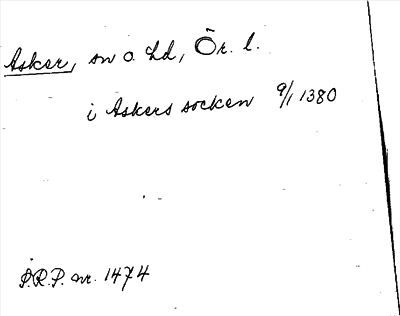 Asker, sn o. hd, Ör. l.
i Askers socken 9/1 1380
S.R.P. nr. 1474